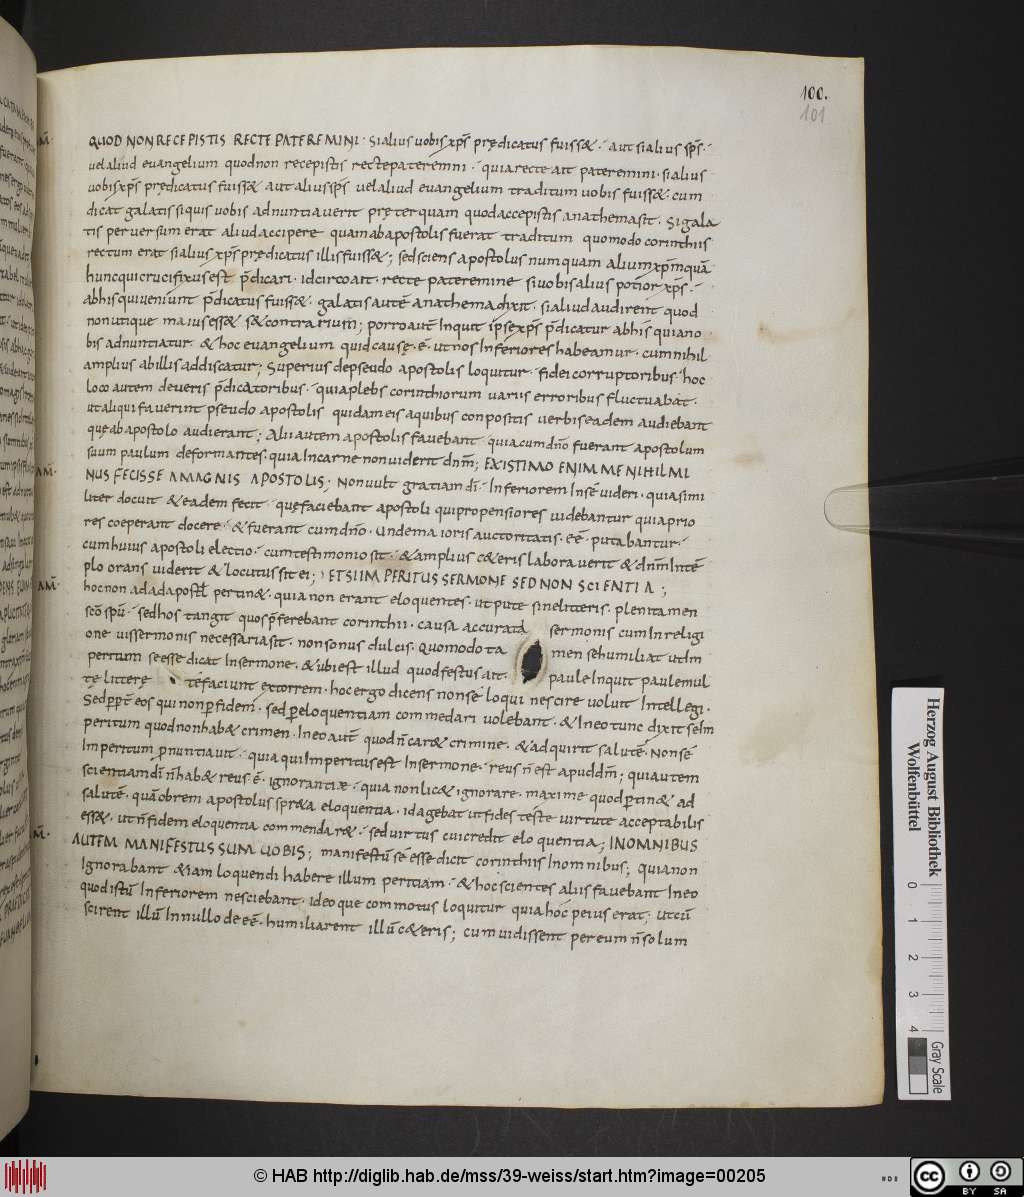 100.
101
QUOD NON RECEPISTIS RECTE PATEREMINI · Si alius uobis xp̄s prędicatus fuiss& · aut si alius sp̄s ·
uel aliud euangelium quod non recepistis recte pateremni · quia recte ait pateremini · si alius
uobis xp̄s prędicatus fuiss& aut alius sp̄s uel aliud euangelium traditum uobis fuiss& · cum
dicat galatis siquis uobis adnuntiauerit pręterquam quod accepistis anathema sit · Si gala
tis peruersum erat aliud accipere quam ab apostolis fuerat traditum quomodo corinthiis
rectum erat si alius xp̄s prędicatus illis fuiss&; sed sciens apostolus numquam alium xp̄m quā
hunc qui crucifixus est p̄dicari · idcirco ait · recte pateremine si uobis alius potior xp̄s ·
ab his qui ueniunt p̄dicatus fuiss& · galatis autē anathema dixit · si aliud audirent quod
non utique maius ess& s& contrarium; porro aut̄ Inquit ipse xp̄s p̄dicatur ab his quia no
bis adnuntiatur · & hoc euangelium quid causę · ē · ut nos Inferiores habeamur · cum nihil
amplius ab illis addiscatur; Superius de pseudo apostolis loquitur · fidei corruptoribus hoc
loco autem de ueris p̄dicAtoribus · quia plebs corinthiorum uariis erroribus fluctuabat ·
ut aliqui fauerint pseudo apostolis quidam eis a quibus conpositis uerbis eadem audiebant
quę ab apostolo audierant; Alii autem apostolis fauebant quia cum dn̄o fuerant apostolum
suum paulum deformantes · quia Incarne non uiderit dnm̄; EXISTIMO ENIM ME NIHIL MI
NUS FECISSE A MAGNIS APOSTOLIS; Non uult gratiam dī · Inferiorem Inse uideri · quia simi
liter docuit & eadem fecit · que faciebant apostoli qui propensiores uidebantur quia prio
res coeperant docere · & fuerant cum dn̄o · Unde maioris auctoritatis · eē · putabantur ·
cum huius apostoli electio · cum testimonio sit · & amplius c&eris laborauerit & dnm̄ Intē
plo orans uiderit & locutus sit ei; ETSI IMPERITUS SERMONE SED NON SCIENTIA;
hoc non ad adapostl̄ pertin& · quia non erant eloquentes · ut pute sine litteris · pleni tamen
scō spū · sed hos tangit quos p̄ferebant corinthii · causa accurata sermonis cum In religi
one uis sermonis necessaria sit · non sonus dulcis · quomodo ta men se humiliat ut Im
peritum se esse dicat In sermone · & ubi est illud quod festus ait · paule Inquit paule mul
tę litterę te faciunt extorrem · hoc ergo dicens non se loqui nescire uoluit Intellegi ·
Sed ppt̄ eos qui non p̄ fidem · sed p̄ eloquentiam commedari uolebant · & In eo tunc dixit se Im
peritum quod non hab& crimen · In eo aut̄ quod n̄ car& crimine · & adquirit salutē · Non sē
Imperitum p̄nuntiauit · quia qui Imperitus est In sermone · reus n̄ est apud dm̄; qui autem
scientiam dī n̄ hab& reus ē · ignorantiæ · quia non lic& ignorare · maxime quod p̄tin& ad
salutē · quā obrem apostolus spr&a eloquentia · id agebat ut fides teste uirtute acceptabilis
ess& · ut n̄ fidem eloquentia commendar& · sed uirtus cui credit eloquentia; IN OMNIBUS
AUTEM MANIFESTUS SUM UOBIS; manifestū se esse dicit corinthiis In omnibus; quia non
Ignorabant &iam loquendi habere illum peritiam · & hoc scientes aliis fauebant In eo
quod istū Inferiorem nesciebant · ideoque commotus loquitur quia hoc peius erat; ut cū
scirent illū In nullo de eē · humiliarent illū c&eris; cum uidissent per eum n̄ solum
Herzog August Bibliothek
Wolfenbüttel
0
1
2
3
4
Gray Scale
© HAB http://diglib.hab.de/mss/39-weiss/start.htm?image=00205
cc
BY SA